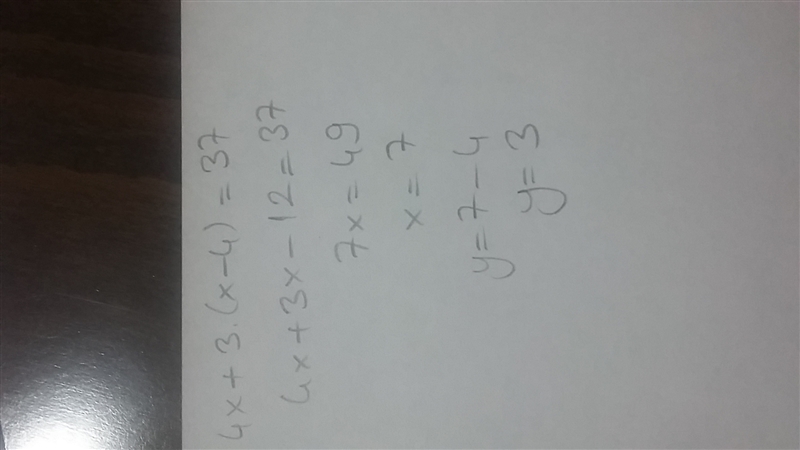 4x+3.(x-4)=37
4x+3x-12=37
7x=49
x=7
y=7-4
y=3